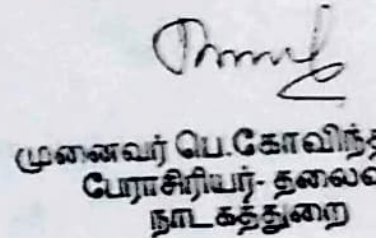 முனைவர் பெ.கோவிந்த
பேராசிரியர்- தலைவ
நாடகத்துறை